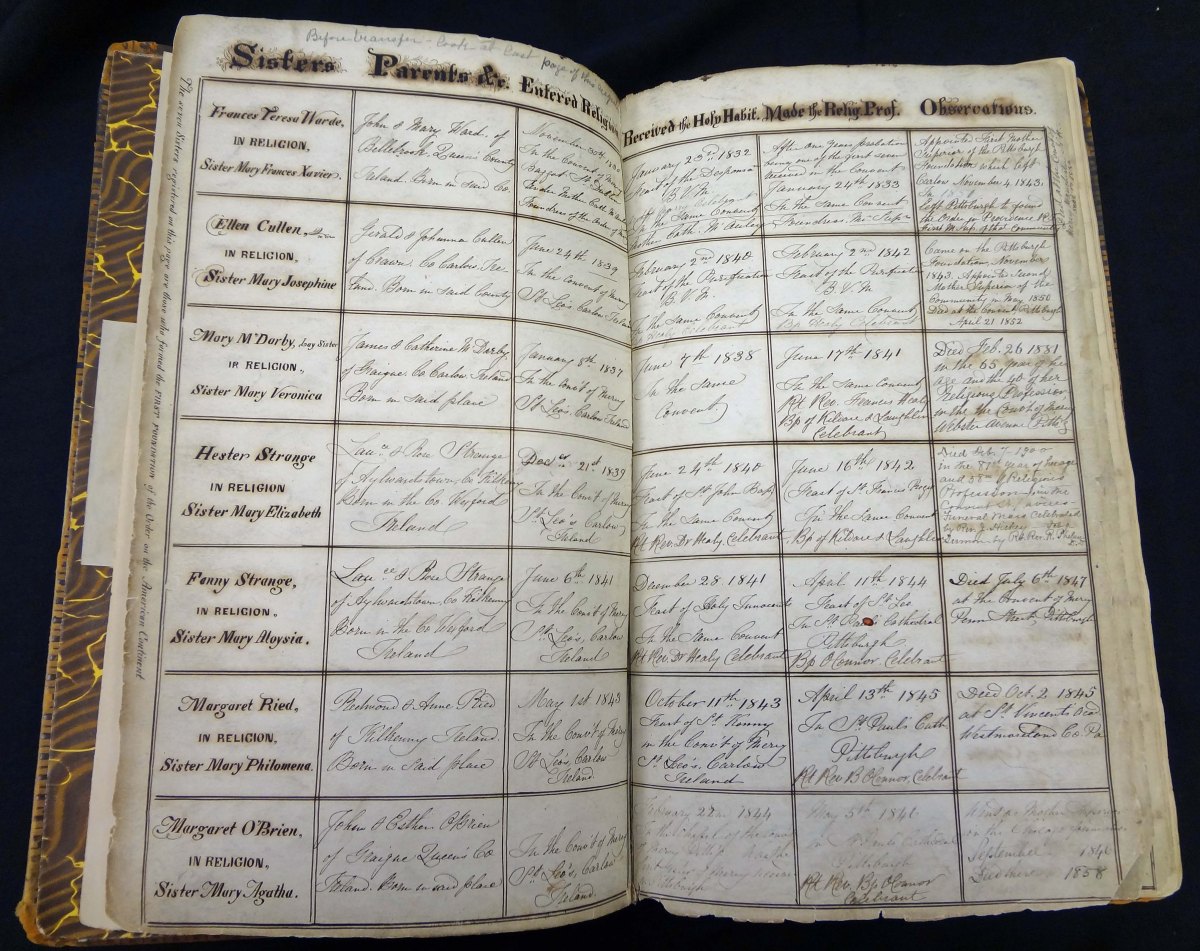 Before transfer - Look at last page of this
Sisters Parents &c. Entered Religion Received the Holy Habit. Made the Relig. Prof. Observations.
The seven Sisters registered on this page are those who formed the FIRST FOUNDATION of the Order on the American Continent
Frances Teresa Warde,
IN RELIGION,
Sister Mary Frances Xavier.
John & Mary Ward. of
Bellbrook, Queen's County
Ireland. Born in said Co.
November
In the Convent of
Baggot St. Dublin
Foundress of the Order of
January 23d. 1832
Feast of the Desponsa
B V M.
In the Same Convent
Mother Cath. McAuley
After one years probation
being one of the first seven
received in the Convent
January 24th 1833
In the Same Convent
Foundress
Appointed First Mother
Superior of the Pittsburgh
Foundation which left
Carlow November 4, 1843.
In
left Pittsburgh to
the Order in Providence R.
Ellen Cullen,
IN RELIGION,
Sister Mary Josephine
Gerald & Johanna Cullen
of Craan. Co Carlow Ire-
land. Born in said County
June 24th 1839
In the convent of Mercy
St Leo's Carlow Ireland
February 2nd 1840
Feast of the Purification
B V M.
In the Same Convent
Celebrant
February 2nd 1842
Feast of the Purification
B V M
In the Same Convent
Bp Healy Celebrant
Came on the Pittsburgh
Foundation, November
1843. Appointed Second
Mother Superior of the
Community in May 1850
Died at the Convent Pittsburgh
April 21 1852
Mary McDarby, Lay Sister
IN RELIGION,
Sister Mary Veronica
James & Catherine McDarby
of Graigue Co Carlow Ireland
Born in said place
January 8th 1837
In the Conv't of Mercy
St Leo's, Carlow Ireland
June 7th 1838
In the Same
Convent
June 17th 1841
In the Same Convent
Rt Rev. Francis Healy
Bp of Kildare & Laughlin
Celebrant
Died Feb. 26 1881
in the 65 year of her
age and the 40 of her
Religious Profession,
in the Conv't of Mercy
Webster Avenue Pitts'g
Hester Strange
IN RELIGION
Sister Mary Elizabeth
Lawce & Rose Strange
of Aylwardstown, Co Kilkenny
Born in the Co. Wexford
Ireland
Decer 21st 1839
In the Conv't of Mercy
St Leo's, Carlow,
Ireland
June 24th 1840
Feast of St John Bapt
In the Same Convent
Rt Rev. Dr Healy Celebrant
June 16th 1842
Feast of St. Francis
In the Same Convent
Bp of Kildare & Laughlin
Died Feb. 7 1900
in the 87th year of her age
and 58th of Religious
Profession
Funeral Mass Celebrated
by Rev.
Sermon by Rt Rev. R. Phelan
Fanny Strange,
IN RELIGION,
Sister Mary Aloysia.
Lawce & Rose Strange
of Aylwardstown, Co Kilkenny
Born in the Co Wexford
Ireland
June 6th 1841
In the Conv't of Mercy
St Leo's, Carlow
Ireland
December 28. 1841
Feast of Holy Innocents
In the Same Convent
Rt Rev. Dr Healy Celebrant
April 11th 1844
Feast of St Leo
In St Paul's Cathedral
Pittsburgh
Bp O'Connor Celebrant
Died July 6th 1847
at the Convent of Mercy
Penn Street Pittsburgh
Margaret Ried,
IN RELIGION,
Sister Mary Philomena.
Redmond & Anne Ried
of Kilkenny Ireland
Born in Said place
May 1st 1843
In the Conv't of Mercy
St Leo's, Carlow
Ireland
October 11th 1843
Feast of St Kenny
in the Conv't of Mercy
St Leo's. Carlow
Ireland
April 13th 1845
In St Paul's Cath
Pittsburgh
Rt Rev B O'Connor Celebrant
Died Oct. 2, 1845
at St Vincents
Westmoreland Co. Pa
Margaret O'Brien,
IN RELIGION,
Sister Mary Agatha.
John & Esther O'Brien
of Graigue Queen's Co
Ireland. Born in said place
In the Conv't of Mercy
St Leo's, Carlow
Ireland
February 22nd 1844
Pittsburgh
May 5th 1846
In St Pauls Cathedral
Pittsburgh
Rt Rev. Bp O'Connor
Celebrant
Went as Mother Superior
on the Chicago
September 1846
Died there 1858